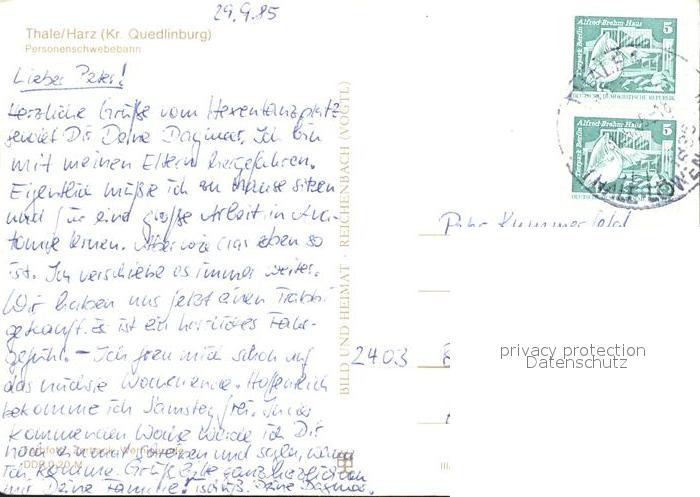 29.9.85
Thale/Harz (Kr. Quedlinburg)
Personenschwebebahn
Lieber Peter!
Herzliche Grüße vom Hexentanzplatz
sendet Dir Deine Dagmar. Ich bin
mit meinen Eltern hergefahren.
Eigentlich müßte ich zu Hause sitzen
und für eine große Arbeit in Ana-
tomie lernen. Aber wie das eben so
ist. Ich verschiebe es immer weiter.
Wir haben uns jetzt einen Trabbi
gekauft. Es ist ein herrliches Fahr-
gefühl. – Ich freu mich schon auf
das nächste Wochenende. Hoffentlich
bekomme ich Samstag frei. In der
kommenden Woche werde ich Dir
noch einmal schreiben und sagen, wann
ich komme. Grüß bitte ganz herzlich von
mir Deine Familie! Tschüß. Deine Dagmar.
DDR 0,20 M
BILD UND HEIMAT · REICHENBACH (VOGTL)
Alfred-Brehm-Haus
Tierpark Berlin
5
DEUTSCHE DEMOKRATISCHE REPUBLIK
Alfred-Brehm-Haus
Tierpark Berlin
5
Peter Kummerfeld
2403
privacy protection
Datenschutz